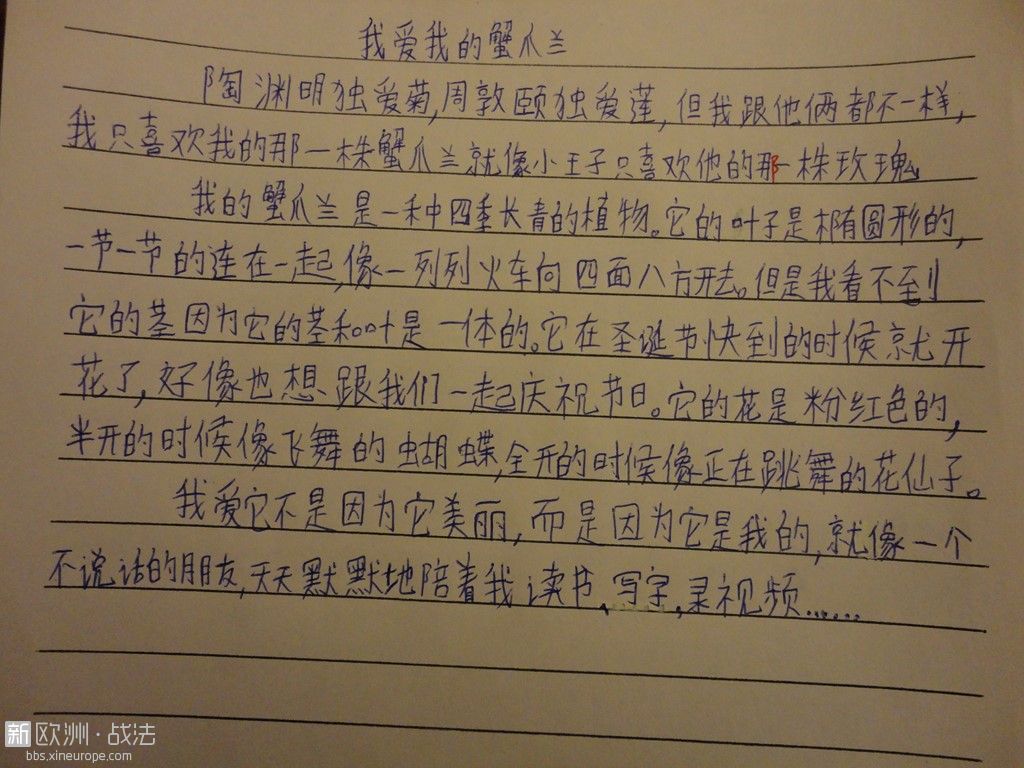 我爱我的蟹爪兰
陶渊明独爱菊,周敦颐独爱莲,但我跟他俩都不一样,
我只喜欢我的那一株蟹爪兰就像小王子只喜欢他的那一株玫瑰
我的蟹爪兰是一种四季长青的植物。它的叶子是椭圆形的,
一节一节的连在一起,像一列列火车向四面八方开去。但是我看不到
它的茎因为它的茎和叶是一体的。它在圣诞节快到的时候就开
花了,好像也想跟我们一起庆祝节日。它的花是粉红色的,
半开的时候像飞舞的蝴蝶,全开的时候像正在跳舞的花仙子。
我爱它不是因为它美丽,而是因为它是我的,就像一个
不说话的朋友,天天默默地陪着我读书、写字,录视频……
新欧洲·战法
bbs.xineurope.com